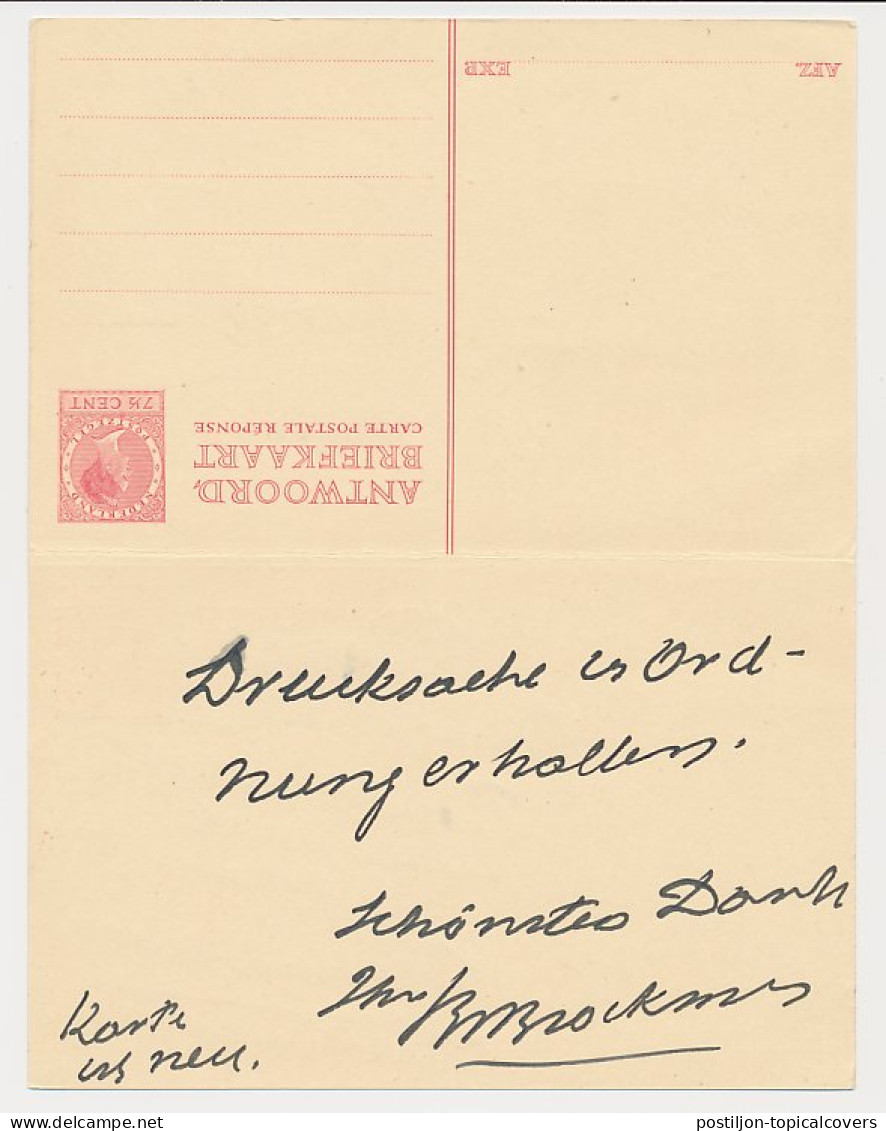 AFZ.
EXP.
ANTWOORD,
BRIEFKAART
CARTE POSTALE RÉPONSE
NEDERLAND
POSTZEGEL
7½ CENT
Drucksache in Ord-
nung erhalten.
Schönsten Dank
Ihr Brockmer
Karte
ist neu.
postiljon-topicalcovers